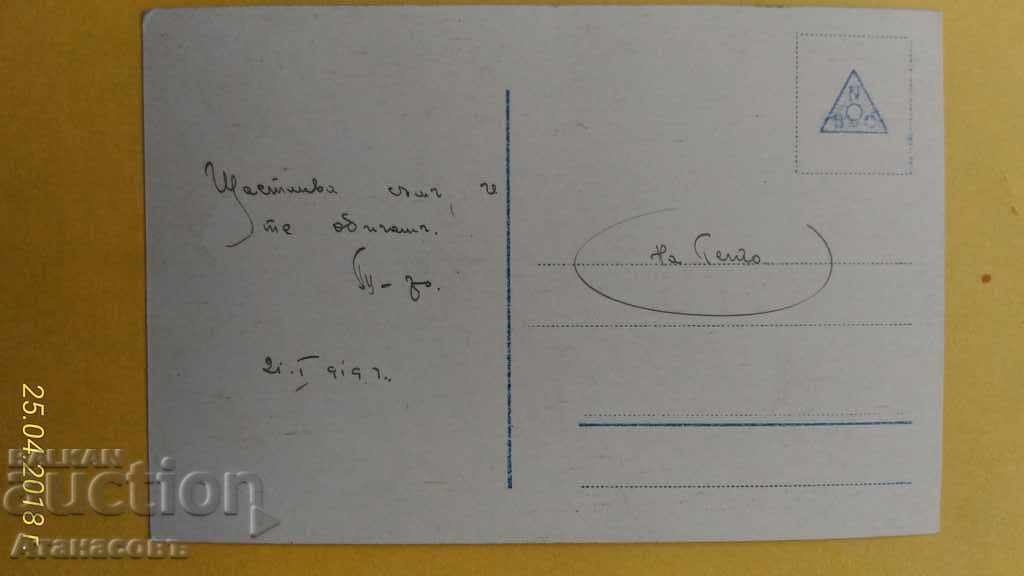 Щастлива съмъ, че
те обичашъ.
21. I 919 г.
На Генчо
N
25.04.2018 г.
BALKAN
auction
Атанасовъ